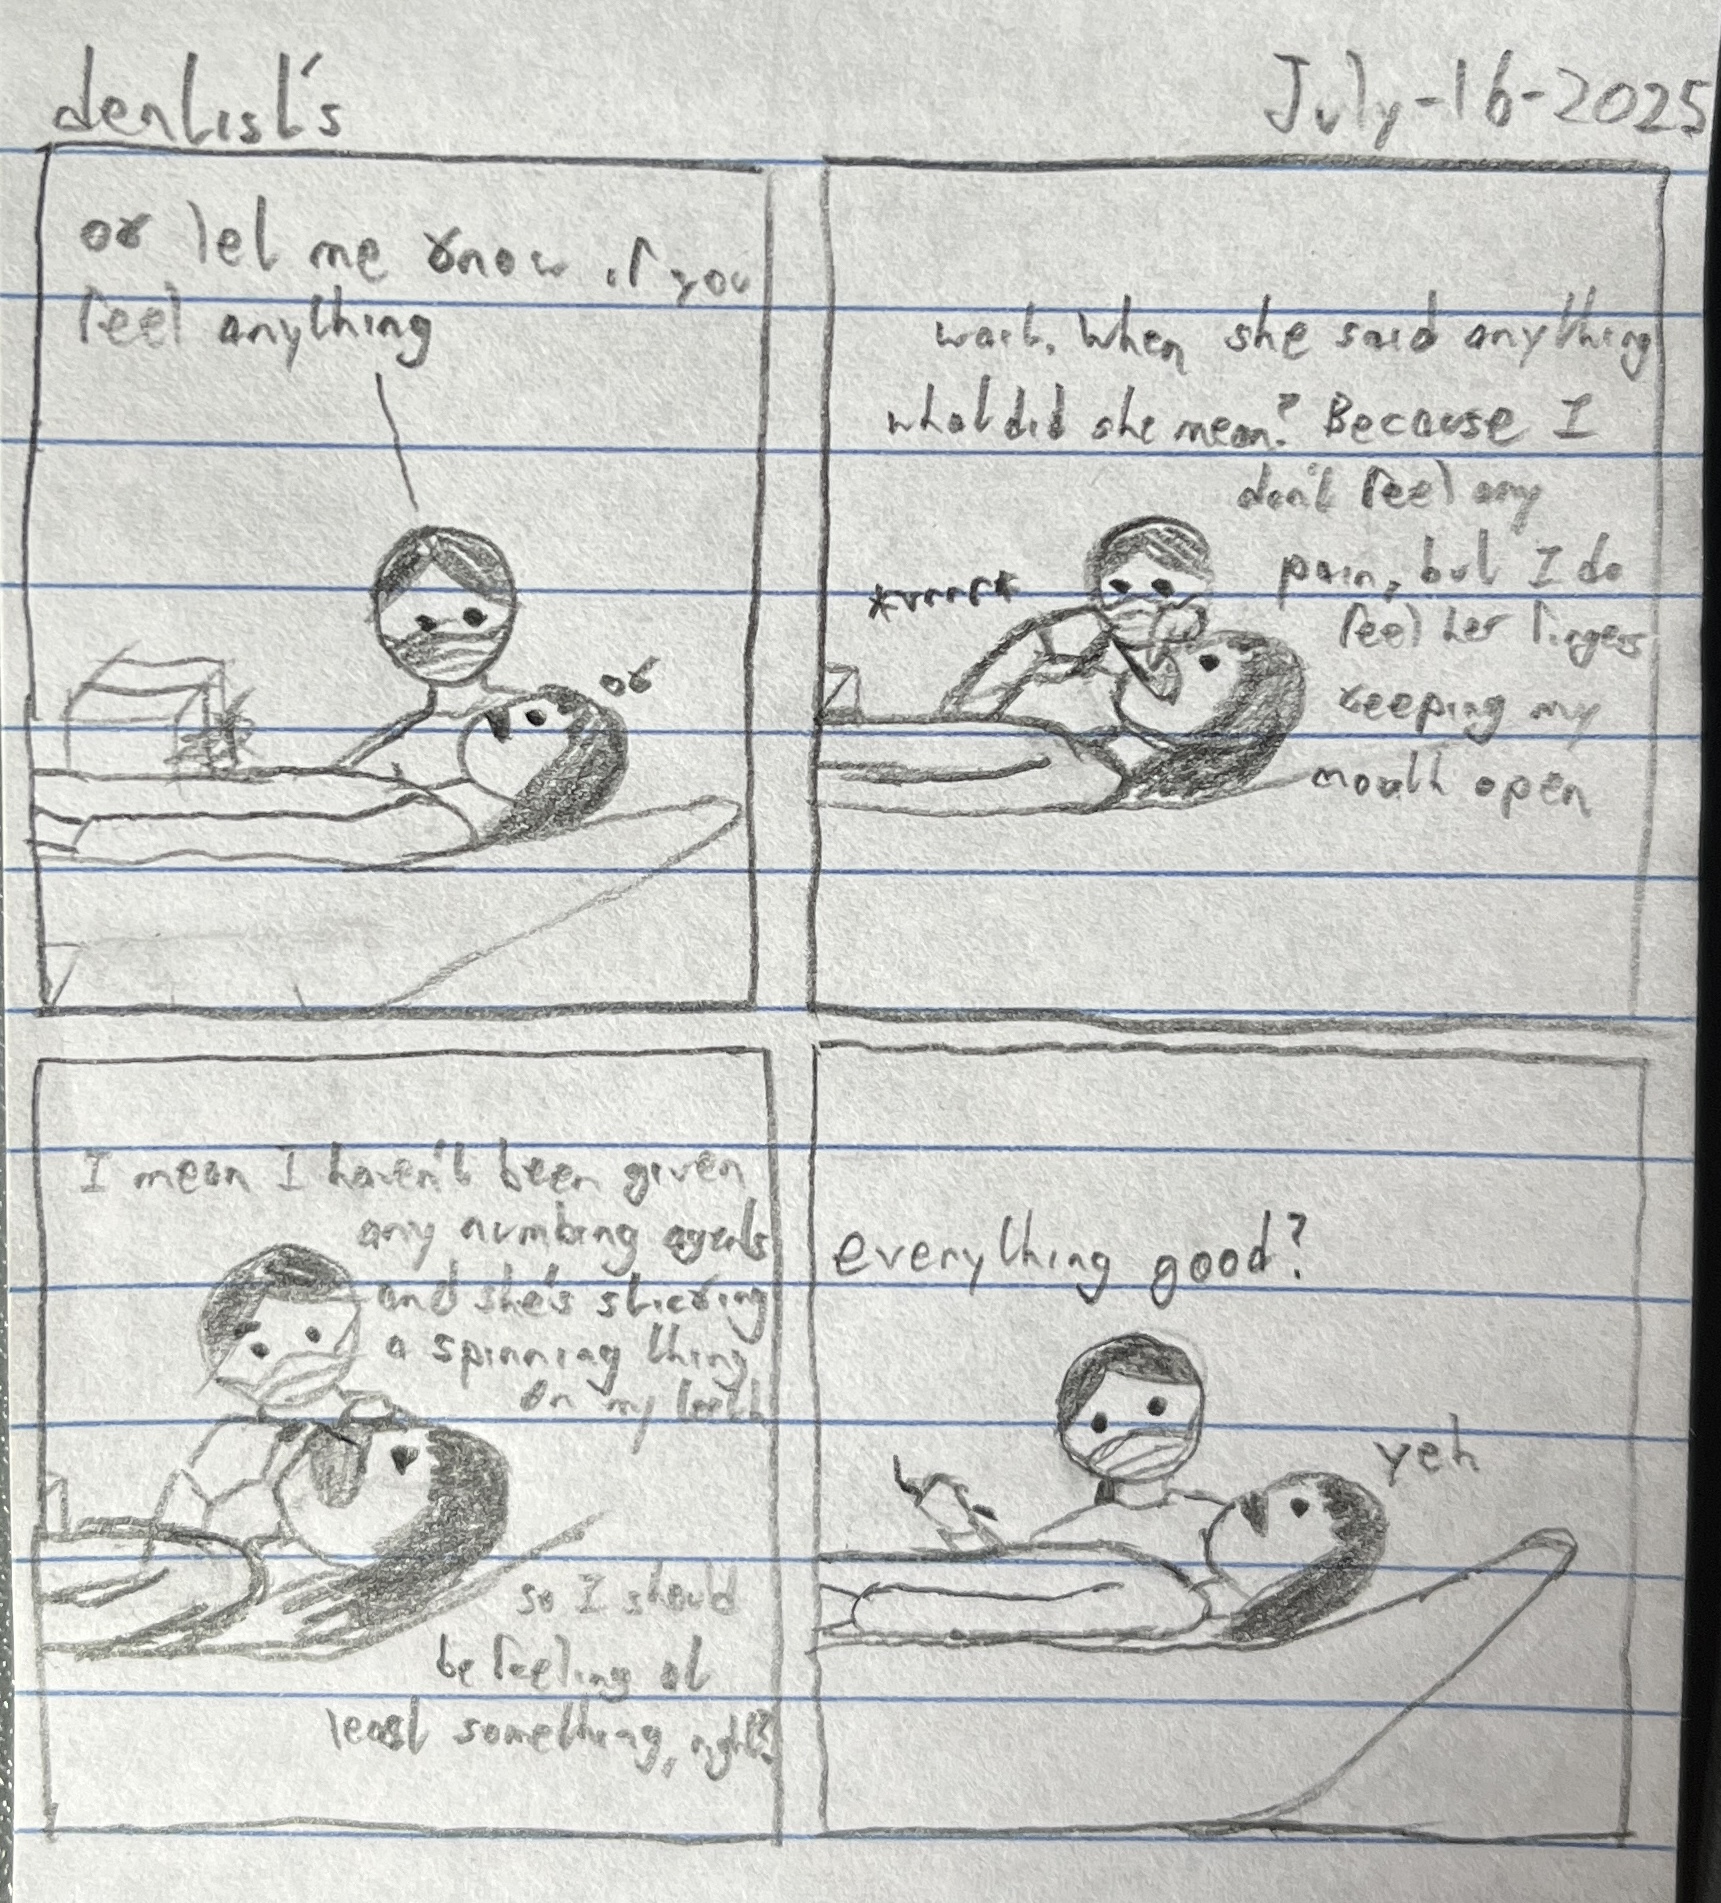 dentist's
July-16-2025
ok let me know if you
feel anything
ok
wait, when she said anything
what did she mean? Because I
don't feel any
pain, but I do
feel her fingers
keeping my
mouth open
*vrrrr*
I mean I haven't been given
any numbing agents
and she's sticking
a spinning thing
on my teeth
so I should
be feeling at
least something, right?
everything good?
yeh